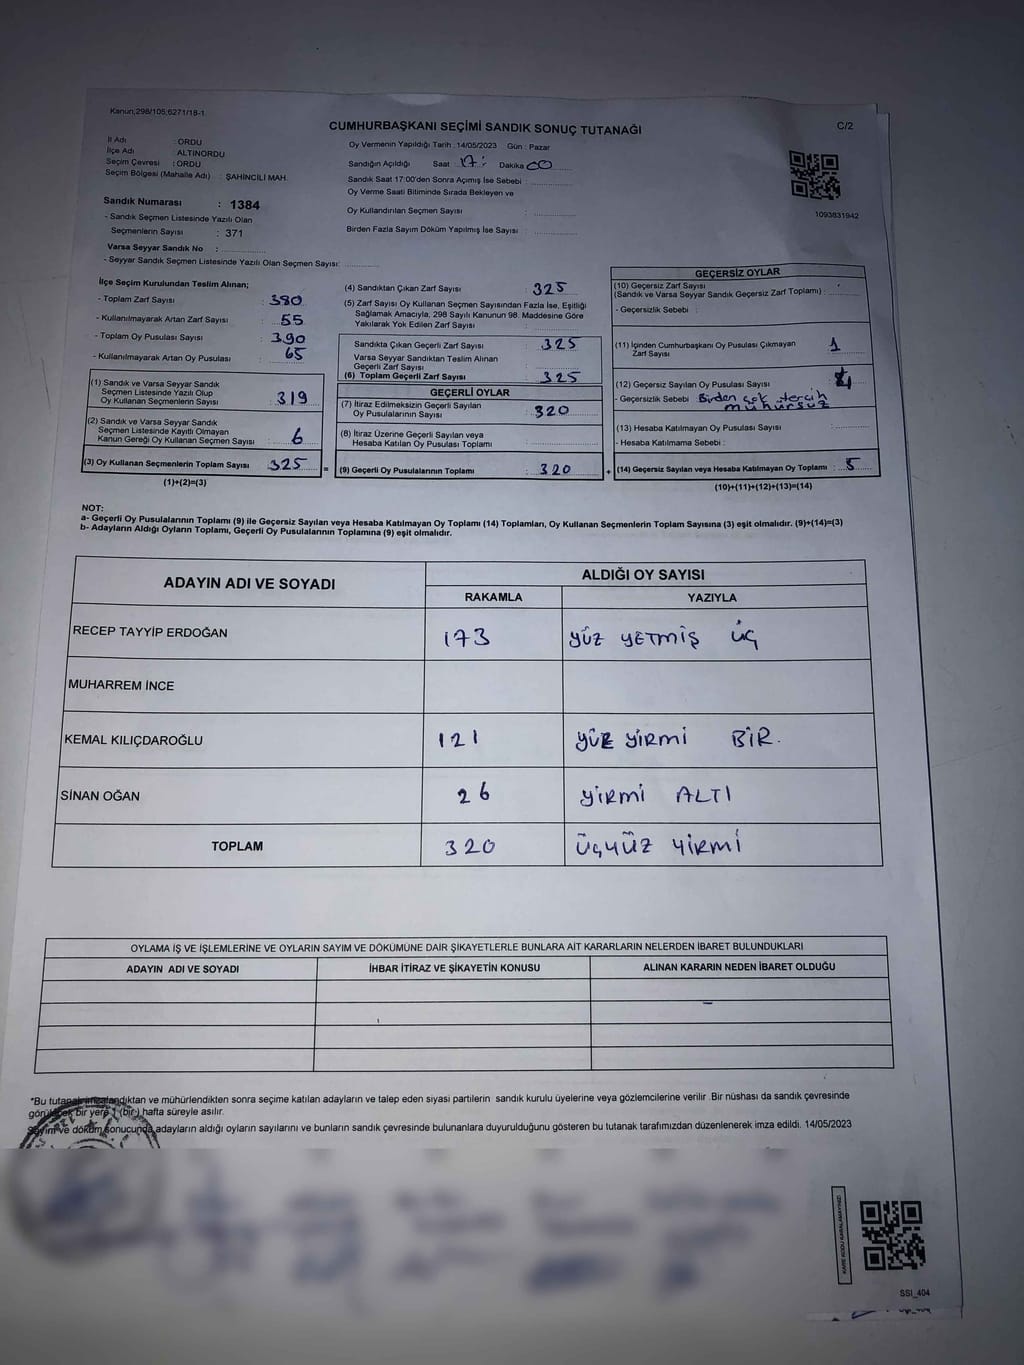 Kanun;298/105;6271/18-1
CUMHURBAŞKANI SEÇİMİ SANDIK SONUÇ TUTANAĞI
C/2
İl Adı : ORDU
İlçe Adı : ALTINORDU
Seçim Çevresi : ORDU
Seçim Bölgesi (Mahalle Adı) : ŞAHİNCİLİ MAH.
Sandık Numarası : 1384
- Sandık Seçmen Listesinde Yazılı Olan
Seçmenlerin Sayısı : 371
Varsa Seyyar Sandık No :
- Seyyar Sandık Seçmen Listesinde Yazılı Olan Seçmen Sayısı:
Oy Vermenin Yapıldığı Tarih :14/05/2023 Gün : Pazar
Sandığın Açıldığı Saat 17: Dakika 00
Sandık Saat 17:00'den Sonra Açımış İse Sebebi :
Oy Verme Saati Bitiminde Sırada Bekleyen ve
Oy Kullandırılan Seçmen Sayısı :
Birden Fazla Sayım Döküm Yapılmış İse Sayısı :
1093831942
İlçe Seçim Kurulundan Teslim Alınan;
- Toplam Zarf Sayısı : 380
- Kullanılmayarak Artan Zarf Sayısı : 55
- Toplam Oy Pusulası Sayısı : 390
- Kullanılmayarak Artan Oy Pusulası : 65
(1) Sandık ve Varsa Seyyar Sandık
Seçmen Listesinde Yazılı Olup
Oy Kullanan Seçmenlerin Sayısı : 319
(2) Sandık ve Varsa Seyyar Sandık
Seçmen Listesinde Kayıtlı Olmayan
Kanun Gereği Oy Kullanan Seçmen Sayısı : 6
(3) Oy Kullanan Seçmenlerin Toplam Sayısı : 325
(1)+(2)=(3)
=
(4) Sandıktan Çıkan Zarf Sayısı : 325
(5) Zarf Sayısı Oy Kullanan Seçmen Sayısından Fazla İse, Eşitliği
Sağlamak Amacıyla, 298 Sayılı Kanunun 98. Maddesine Göre
Yakılarak Yok Edilen Zarf Sayısı :
Sandıkta Çıkan Geçerli Zarf Sayısı : 325
Varsa Seyyar Sandıktan Teslim Alınan
Geçerli Zarf Sayısı :
(6) Toplam Geçerli Zarf Sayısı : 325
GEÇERLİ OYLAR
(7) İtiraz Edilmeksizin Geçerli Sayılan
Oy Pusulalarının Sayısı : 320
(8) İtiraz Üzerine Geçerli Sayılan veya
Hesaba Katılan Oy Pusulası Toplamı :
(9) Geçerli Oy Pusulalarının Toplamı : 320
+
GEÇERSİZ OYLAR
(10) Geçersiz Zarf Sayısı
(Sandık ve Varsa Seyyar Sandık Geçersiz Zarf Toplamı) :
- Geçersizlik Sebebi :
(11) İçinden Cumhurbaşkanı Oy Pusulası Çıkmayan
Zarf Sayısı : 1
(12) Geçersiz Sayılan Oy Pusulası Sayısı : 4
- Geçersizlik Sebebi : Birden çok tercih
mühürsüz
(13) Hesaba Katılmayan Oy Pusulası Sayısı :
- Hesaba Katılmama Sebebi :
(14) Geçersiz Sayılan veya Hesaba Katılmayan Oy Toplamı : 5
(10)+(11)+(12)+(13)=(14)
NOT:
a- Geçerli Oy Pusulalarının Toplamı (9) ile Geçersiz Sayılan veya Hesaba Katılmayan Oy Toplamı (14) Toplamları, Oy Kullanan Seçmenlerin Toplam Sayısına (3) eşit olmalıdır. (9)+(14)=(3)
b- Adayların Aldığı Oyların Toplamı, Geçerli Oy Pusulalarının Toplamına (9) eşit olmalıdır.
ADAYIN ADI VE SOYADI
ALDIĞI OY SAYISI
RAKAMLA YAZIYLA
RECEP TAYYİP ERDOĞAN 173 YÜZ YETMİŞ ÜÇ
MUHARREM İNCE
KEMAL KILIÇDAROĞLU 121 YÜZ YİRMİ BİR.
SİNAN OĞAN 26 YİRMİ ALTI
TOPLAM 320 ÜÇYÜZ YİRMİ
OYLAMA İŞ VE İŞLEMLERİNE VE OYLARIN SAYIM VE DÖKÜMÜNE DAİR ŞİKAYETLERLE BUNLARA AİT KARARLARIN NELERDEN İBARET BULUNDUKLARI
ADAYIN ADI VE SOYADI İHBAR İTİRAZ VE ŞİKAYETİN KONUSU ALINAN KARARIN NEDEN İBARET OLDUĞU
*Bu tutanak imzalandıktan ve mühürlendikten sonra seçime katılan adayların ve talep eden siyasi partilerin sandık kurulu üyelerine veya gözlemcilerine verilir .Bir nüshası da sandık çevresinde
görülecek bir yere 1 (bir) hafta süreyle asılır.
Sayım ve döküm sonucunda adayların aldığı oyların sayılarını ve bunların sandık çevresinde bulunanlara duyurulduğunu gösteren bu tutanak tarafımızdan düzenlenerek imza edildi. 14/05/2023
KARE KODU KARALAMAYINIZ!
SSI_404